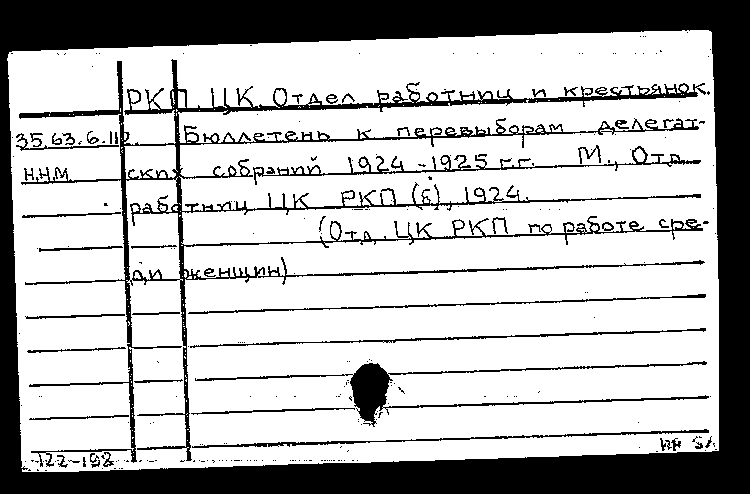 РКП. ЦК. Отдел работниц и крестьянок.
35.63.6.112. Бюллетень к перевыборам делегат-
Н.Н.М. ских собраний 1924-1925 г.г. М., Отд.
работниц ЦК РКП (б), 1924.
(Отд. ЦК РКП по работе сре-
ди женщин)
122-198